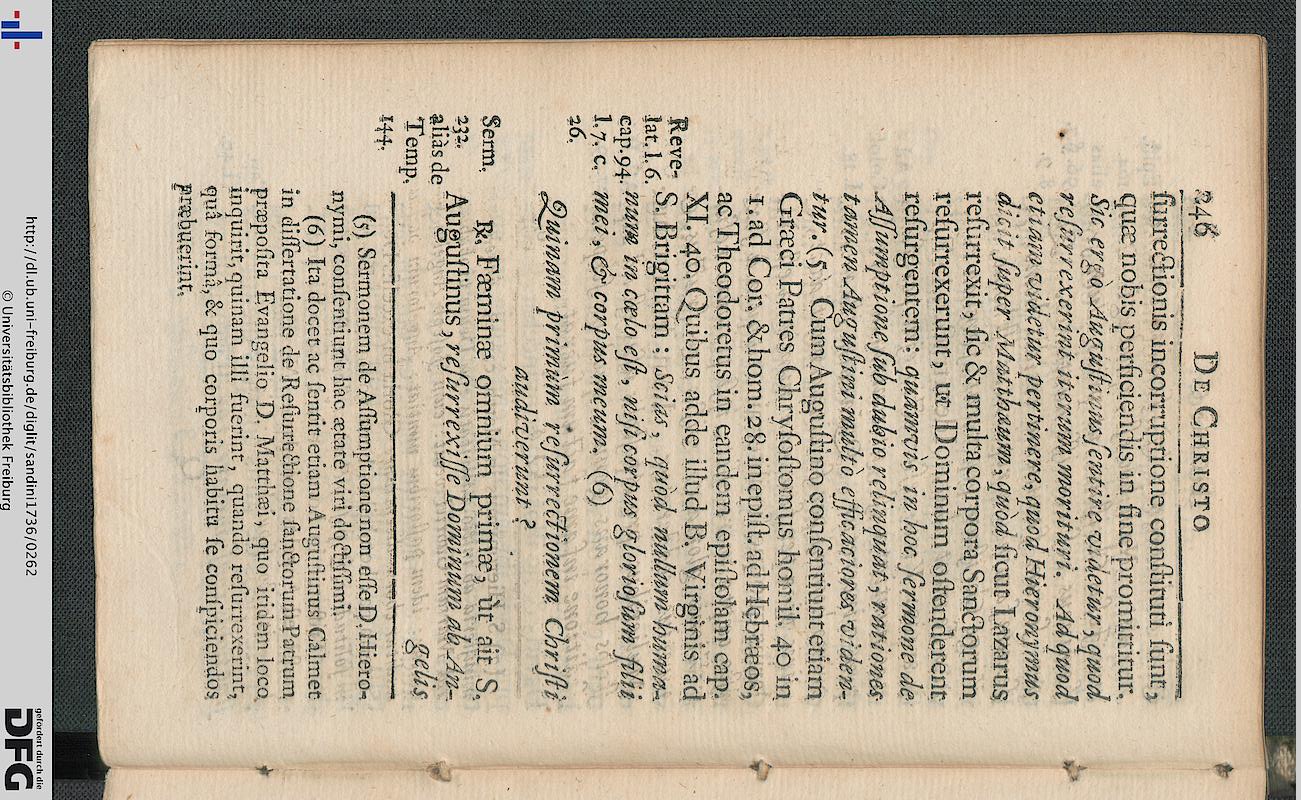 246 DE CHRISTO
ſurrectionis incorruptione conſtituti ſunt,
quæ nobis perficiendis in fine promittitur.
Sic ergò Auguſtinus ſentire videtur, quod
reſurrexerint iterum morituri. Ad quod
etiam videtur pertinere, quod Hieronymus
dicit ſuper Matthæum, quòd ſicut Lazarus
reſurrexit, ſic & multa corpora Sanctorum
reſurrexerunt, ut Dominum oſtenderent
reſurgentem: quamvis in hoc ſermone de
Aſſumptione ſub dubio relinquat, rationes
tamen Auguſtini multò efficaciores viden-
tur. (5 Cum Auguſtino conſentiunt etiam
Græci Patres Chryſoſtomus homil. 40 in
1. ad Cor. & hom. 28. in epiſt. ad Hebræos,
ac Theodoretus in eandem epiſtolam cap.
XI. 40. Quibus adde illud B. Virginis ad
Reve-
lat. l. 6.
cap. 94.
l. 7. c.
26.
S. Brigittam: Scias, quòd nullum huma-
num in cælo eſt, niſi corpus glorioſum filii
mei, & corpus meum. (6)
Quinam primùm reſurrectionem Chriſti
audiverunt?
Serm.
232.
aliàs de
Temp.
144.
℞. Fæminæ omnium primæ, ùt ait S.
Auguſtinus, reſurrexiſſe Dominum ab An-
gelis
(5) Sermonem de Aſſumptione non eſſe D. Hiero-
nymi, conſentiunt hac ætate viri doctiſſimi.
(6) Ita docet ac ſentit etiam Auguſtinus Calmet
in diſſertatione de Reſurrectione ſanctorum Patrum
præpoſita Evangelio D. Matthæi, quo itidem loco
inquirit, quinam illi fuerint, quando reſurrexerint,
quâ formâ, & quo corporis habitu ſe conſpiciendos
præbuerint.
http://dl.ub.uni-freiburg.de/diglit/sandini1736/0262
© Universitätsbibliothek Freiburg
gefördert durch die
DFG